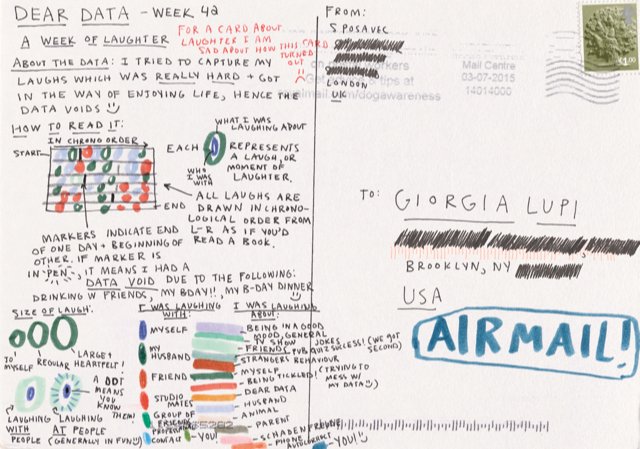 DEAR DATA - WEEK 42
A WEEK OF LAUGHTER
FOR A CARD ABOUT
LAUGHTER I AM
SAD ABOUT HOW THIS CARD
TURNED
OUT :(
ABOUT THE DATA: I TRIED TO CAPTURE MY
LAUGHS WHICH WAS REALLY HARD + GOT
IN THE WAY OF ENJOYING LIFE, HENCE THE
DATA VOIDS
HOW TO READ IT:
IN CHRONO ORDER
START
END
WHAT I WAS
LAUGHING ABOUT
EACH
WHO
I WAS
WITH
REPRESENTS
A LAUGH, OR
MOMENT OF
LAUGHTER.
ALL LAUGHS ARE
DRAWN IN CHRONO-
LOGICAL ORDER FROM
L-R AS IF YOU'D
READ A BOOK.
MARKERS INDICATE END
OF ONE DAY + BEGINNING OF
OTHER. IF MARKER IS
IN "PEN", IT MEANS I HAD A
DATA VOID DUE TO THE FOLLOWING:
DRINKING W FRIENDS, MY BDAY!!, MY B-DAY DINNER
SIZE OF LAUGH:
TO
MYSELF
REGULAR
LARGE +
HEARTFELT!
A DOT
MEANS
YOU
KNOW
THEM!
LAUGHING
WITH
PEOPLE
LAUGHING
AT PEOPLE
(GENERALLY IN FUN)
I WAS LAUGHING
WITH:
MYSELF
MY
HUSBAND
FRIEND
STUDIO
MATES
GROUP OF
FRIENDS
PROFESSIONAL
CONTACT
YOU!
I WAS LAUGHING
ABOUT:
BEING IN A GOOD
MOOD, GENERAL
TV SHOW JOKES
FRIENDS PUB QUIZ SUCCESS! (WE GOT
SECOND)
STRANGERS BEHAVIOUR
MYSELF
BEING TICKLED! (TRYING TO
MESS W/
MY DATA)
DEAR DATA
HUSBAND
ANIMAL
PARENT
SCHADENFREUDE
PHONE AUTOCORRECT
YOU!
FROM:
S POSAVEC
LONDON
UK
Mail Centre
03-07-2015
14014000
£1.00
TO:
GIORGIA LUPI
BROOKLYN, NY
USA
AIRMAIL!